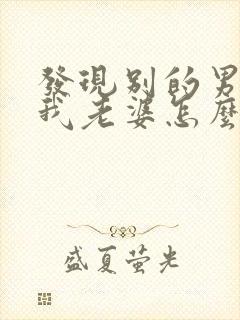 發現別的男
我老婆怎麼
盛夏萤光